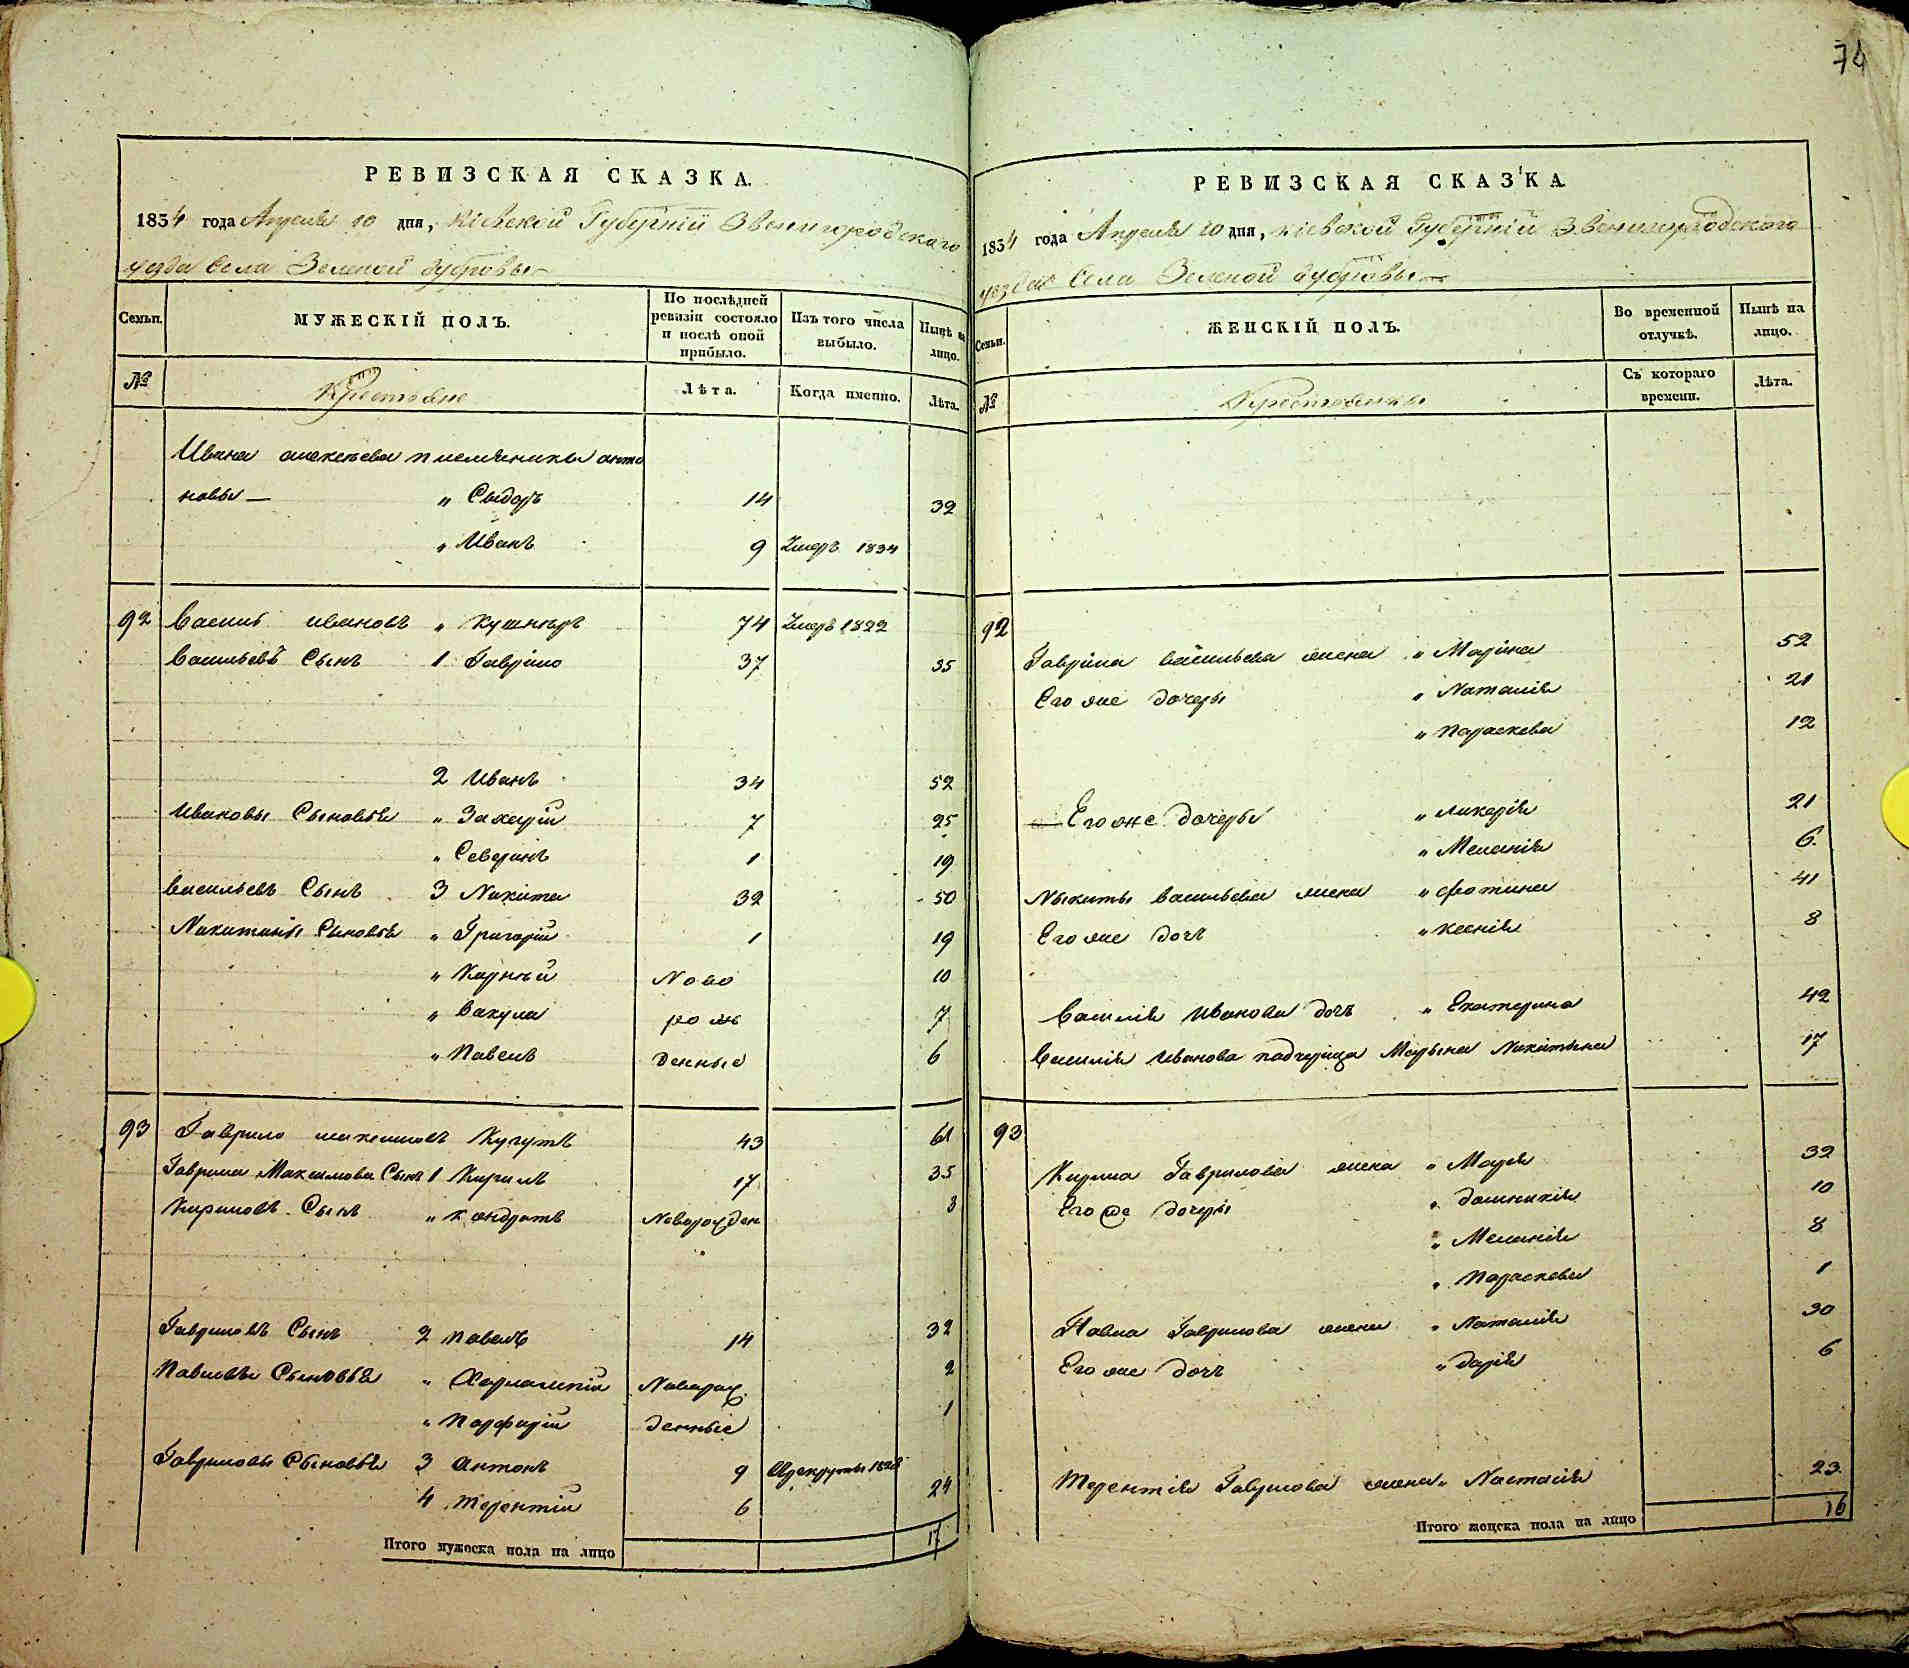 74
РЕВИЗСКАЯ СКАЗКА.
1834 года Апреля 10 дня, Кіевской Губерніи Звенигородскаго
уезда Села Зеленой Дубровы
Семьи. МУЖЕСКІЙ ПОЛЪ. По послѣдней ревизіи состояло и послѣ оной прибыло. Изъ того числа выбыло. Нынѣ на лицо.
№ Крестьяне Лѣта. Когда именно. Лѣта.
Ивана алексѣева племянники анто
новы — " Сыдоръ 14 32
" Иванъ 9 Умеръ 1834
92 Василь ивановъ " Кушниръ 74 Умеръ 1822
Васильевъ Сынъ 1 Гавріло 37 35
2 Иванъ 34 52
Ивановы Сыновья " Захарій 7 25
" Северинъ 1 19
Васильевъ Сынъ 3 Никита 32 50
Никитины Сыновья " Григорій 1 19
" Корнѣй Ново 10
" Вакула рож 7
" Павелъ денные 6
93 Гаврило максимовъ Кугутъ 43 61
Гаврила Максимова Сынъ 1 Кирилъ 17 35
Кириловъ Сынъ " Кондратъ Новорожден 3
Гавриловъ Сынъ 2 Павелъ 14 32
Павловы Сыновья " ХарлампійНоворож 2
" Парфирій денные 1
Гавриловы Сыновья 3 Антонъ 9 Врекруты 1828
4 Терентій 6 24
Итого мужеска пола на лицо 17
РЕВИЗСКАЯ СКАЗКА
1834 года Апреля 10 дня, Кіевской Губерніи Звенигородского
уезда Села Зеленой Дубровы
Семьи. ЖЕНСКІЙ ПОЛЪ. Во временной отлучкѣ. Нынѣ на лицо.
№ Крестьянки Съ котораго времени. Лѣта.
92
Гаврила васильева жена " Маріна 52
Его же дочеры " Наталія 21
" Параскева 12
Его же дочеры " Ликерія 21
" Меланія 6
Ныкиты васильева жена " фотина 41
Его же дочь " Ксенія 8
Василія Иванова дочь " Екатерина 42
Василія Иванова падчерица Марына Никитына 17
93
Кирила Гаврилова жена " Марія 32
Его же дочеры " Домникія 10
" Меланія 8
" Параскева 1
Павла Гаврилова жена " Наталія 30
Его же дочь " дарія 6
Терентія Гаврилова жена " Настасія 23
Итого женска пола на лицо 16